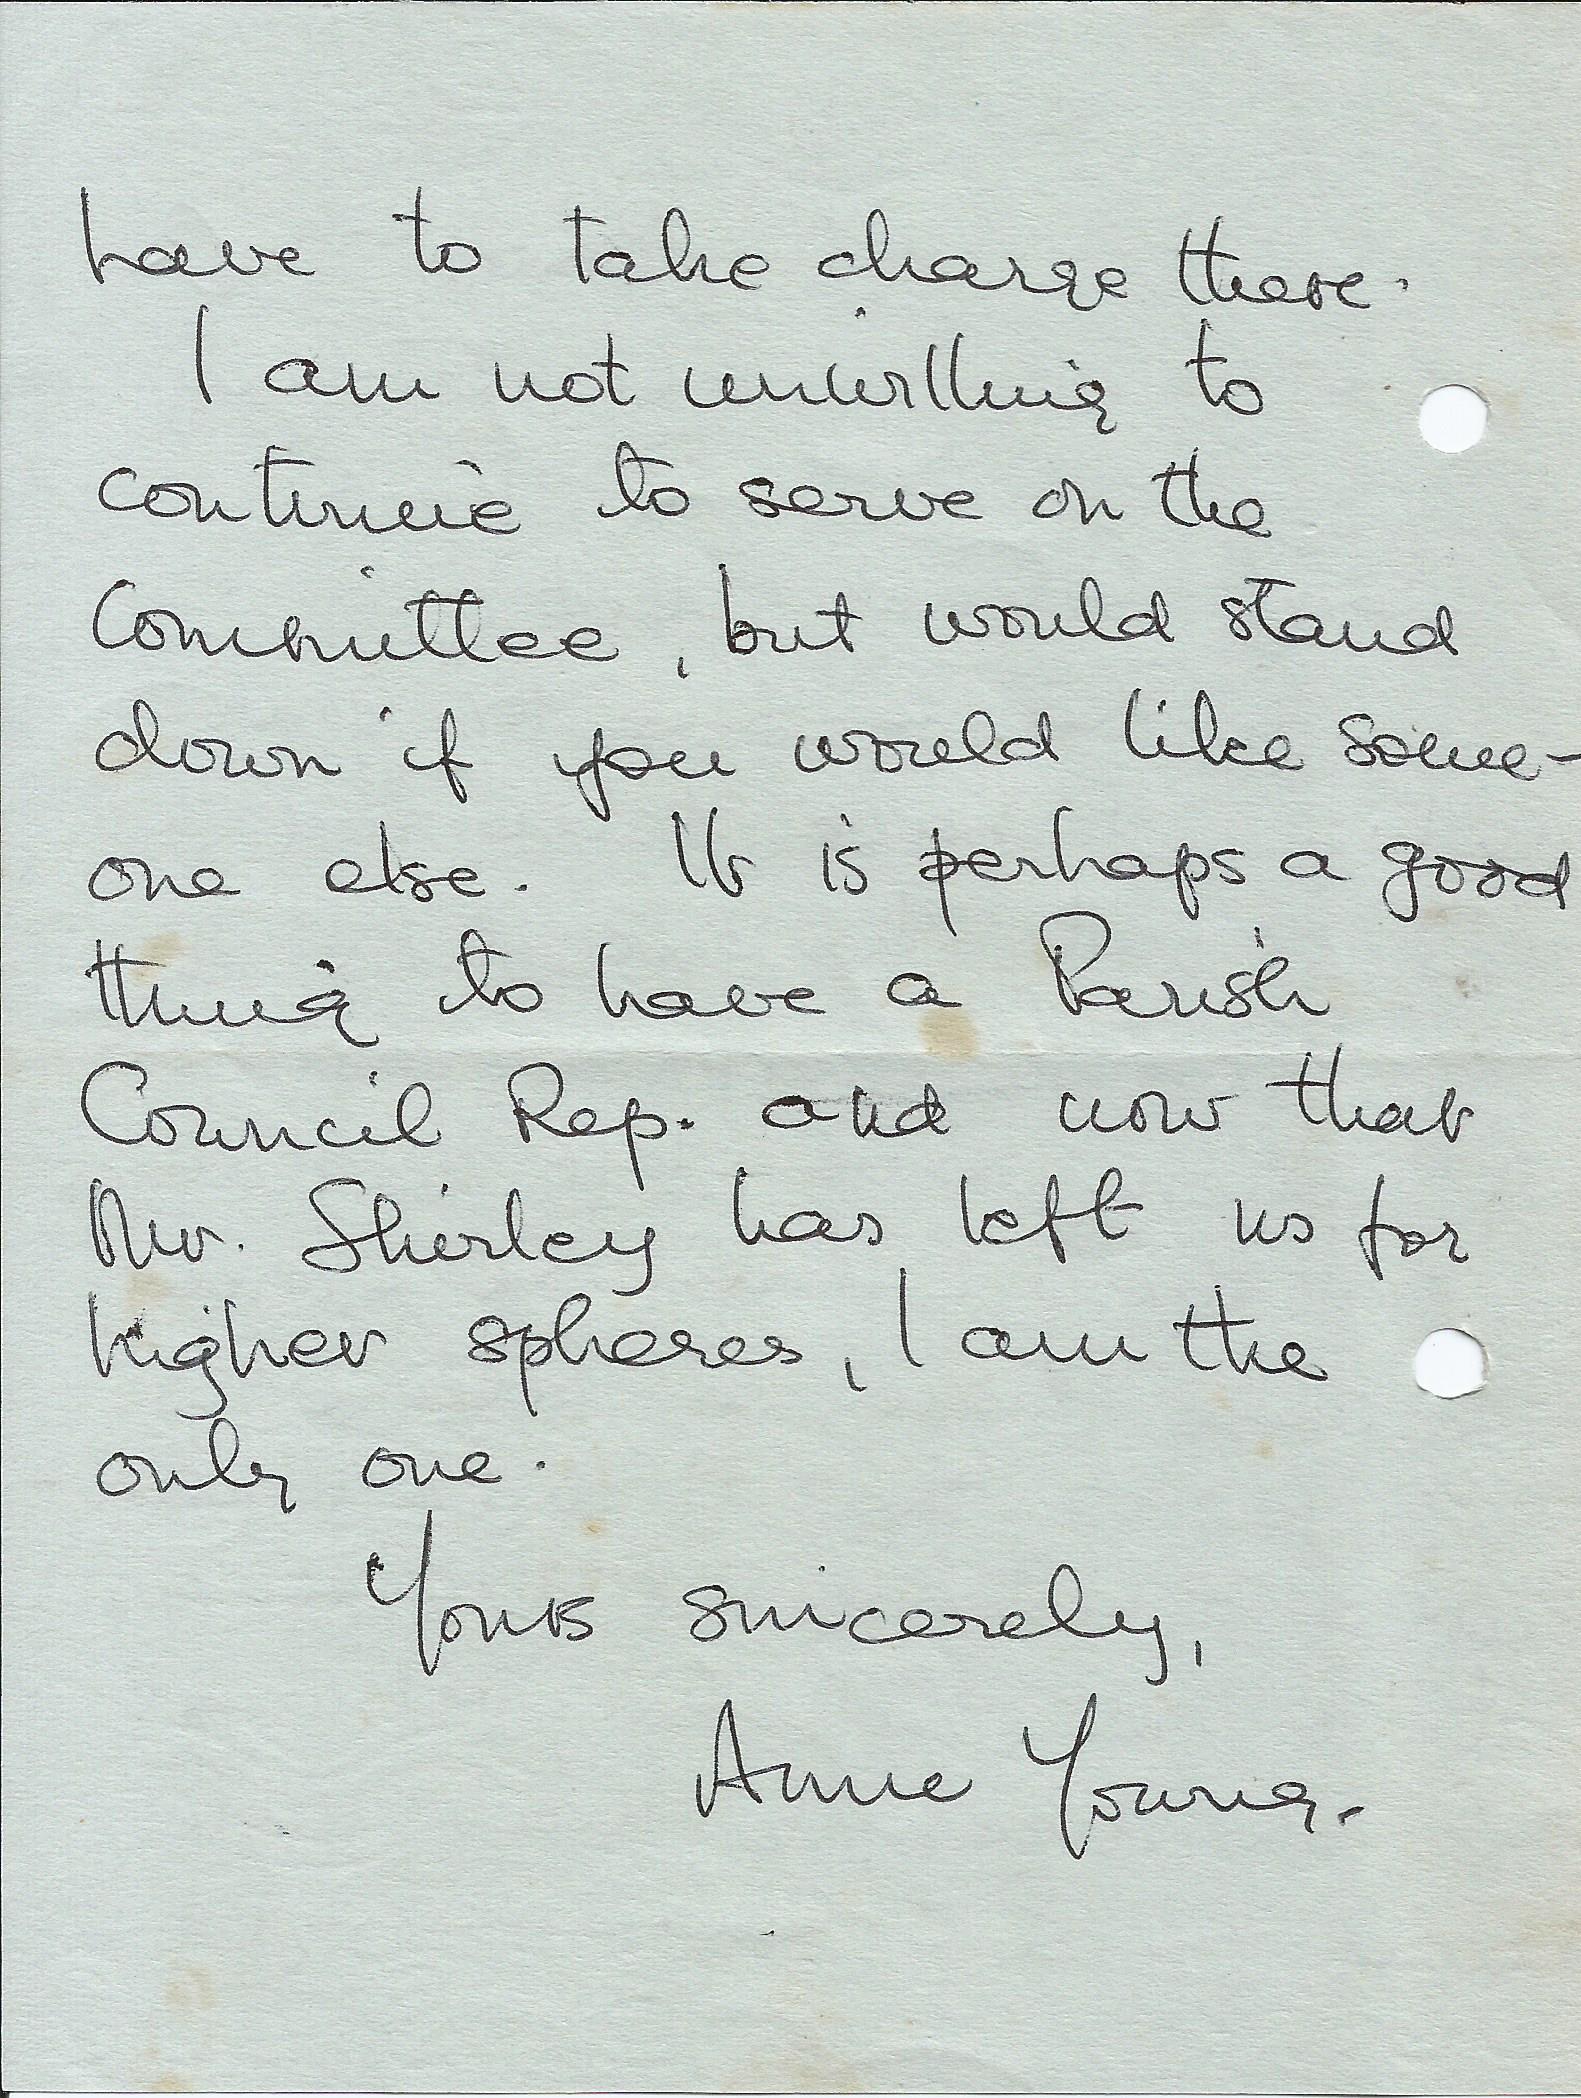 have to take charge there.
I am not unwilling to
continue to serve on the
Committee, but would stand
down if you would like some-
one else. It is perhaps a good
thing to have a Parish
Council Rep. and now that
Mr. Shirley has left us for
higher spheres, I am the
only one.
Yours sincerely,
Anne Young.